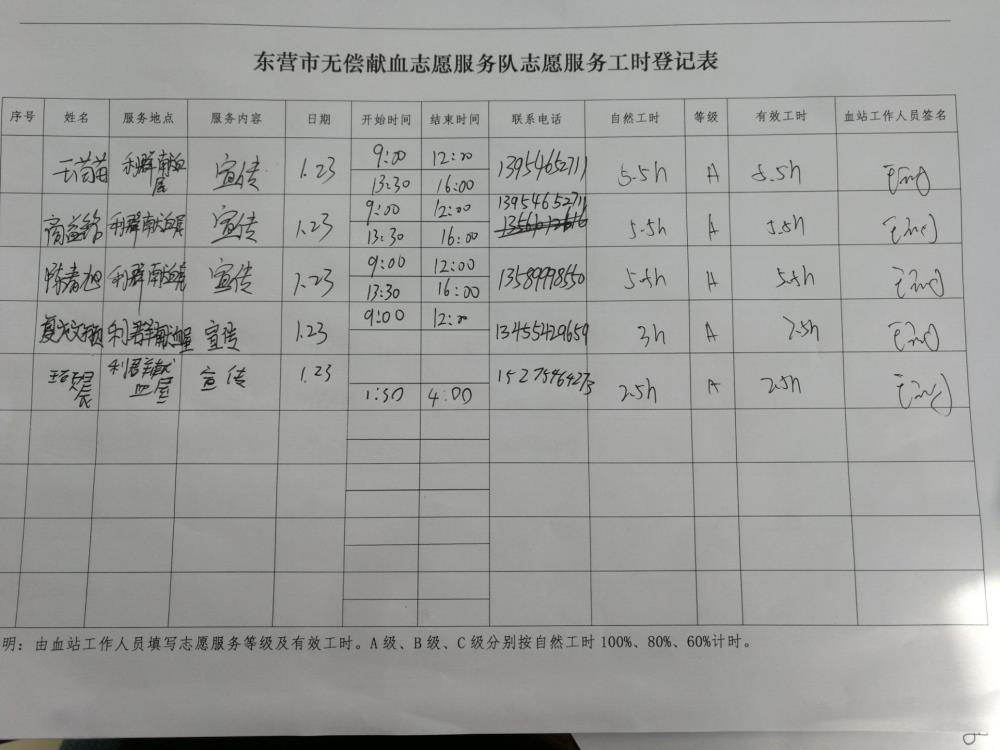 东营市无偿献血志愿服务队志愿服务工时登记表
序号 姓名 服务地点 服务内容 日期 开始时间 结束时间 联系电话 自然工时 等级 有效工时 血站工作人员签名
利群献血屋 宣传 1.23 9:00 12:00 13954652711 5.5h A 5.5h
13:30 16:00
商益铭 利群献血屋 宣传 1.23 9:00 12:00 13954652711 5.5h A 5.5h
13:30 16:00
陈春旭 利群献血屋 宣传 1.23 9:00 12:00 13589998550 5.5h A 5.5h
13:30 16:00
利群献血屋 宣传 1.23 9:00 12:00 13455429659 3h A
利群献血屋 宣传 1.23 15275464273 2.5h A 2.5h
1:30 4:00
明：由血站工作人员填写志愿服务等级及有效工时。A级、B级、C级分别按自然工时100%、80%、60%计时。